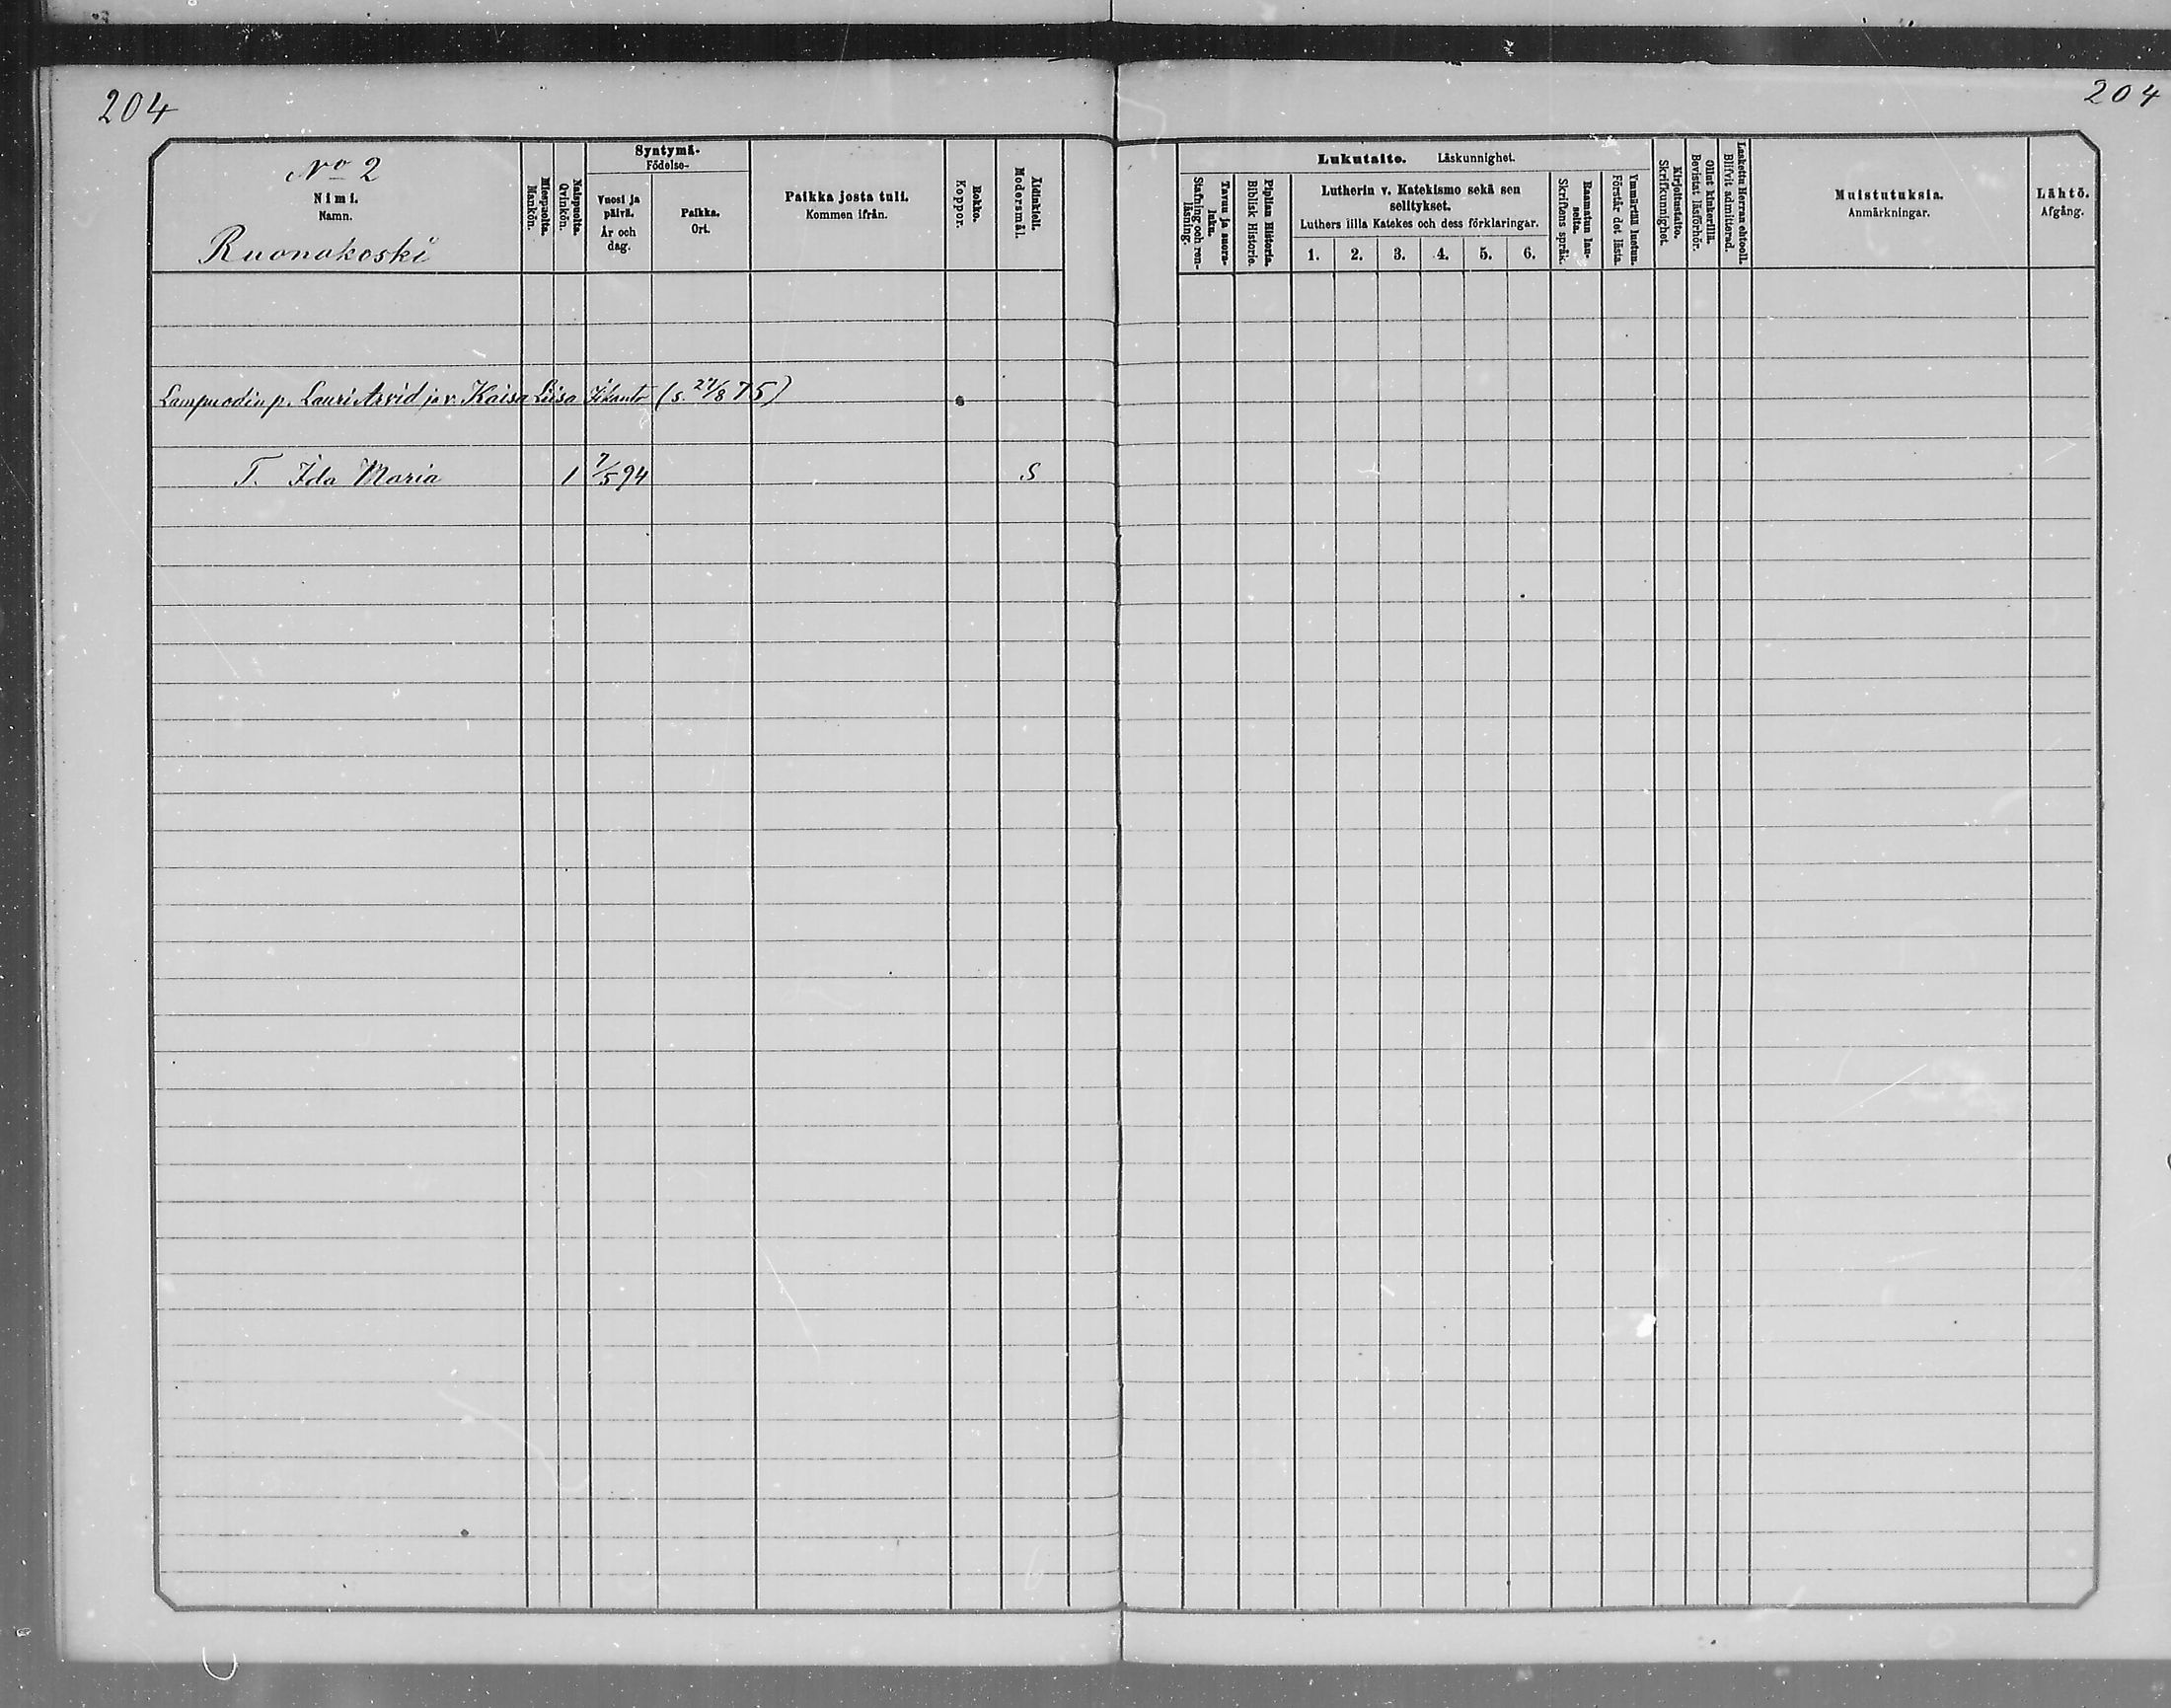 204
204
No 2
Nimi.
Namn.
Ruonakoski
Miespuolta.
Mankön.
Naispuolta.
Qvinkön.
Syntymä-
Födelse-
Vuosi ja
päivä.
År och
dag.
Paikka.
Ort.
Paikka josta tuli.
Kommen ifrån.
Rokko.
Koppor.
Äidinkieli.
Modersmål.
Lukutaito. Läskunnighet.
Tavuu ja suora-
luku.
Stafning och ren-
läsning.
Piplian Historia.
Biblisk Historie.
Lutherin v. Katekismo sekä sen
selitykset.
Luthers lilla Katekes och dess förklaringar.
1. 2. 3. 4. 5. 6.
Raamatun lau-
seita.
Skriftens språk.
Ymmärtää luetun.
Förstår det lästa.
Kirjoitustaito.
Skrifkunnighet.
Ollut kinkerillä.
Bevistat läsförhör.
Laskettu Herran ehtool.
Blifvit admitterad.
Muistutuksia.
Anmärkningar.
Lähtö.
Afgång.
Lampuodin p. Lauri Arvid ja v. Kaisa Liisa (s. 27/8 75)
T. Ida Maria 1 7/5 94 S